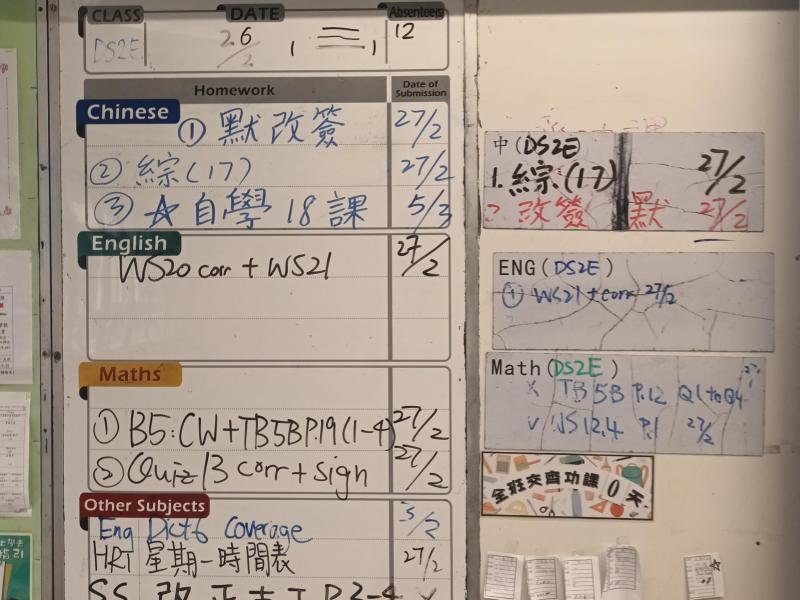 CLASS DATE Absentee(s)
DS2E 26/2 , 三 , 12
Homework Date of Submission
Chinese
① 默改簽 27/2
② 綜(17) 27/2
③ ☆自學18課 5/3
English
WS20 corr + WS21 27/2
Maths
① B5:CW+TB5BP.19(1-4) 27/2
② Quiz 13 corr + sign 27/2
Other Subjects
Eng Dict6 Coverage 3/2
HRT 星期一時間表 27/2
中(DS2E)
1. 綜(17) 27/2
2. 改簽 默 27/2
ENG(DS2E)
① WS21+corr 27/2
Math(DS2E)
x TB 5B P.12 Q1 to Q4
v WS 12.4 P.1 27/2
全班交齊功課0天